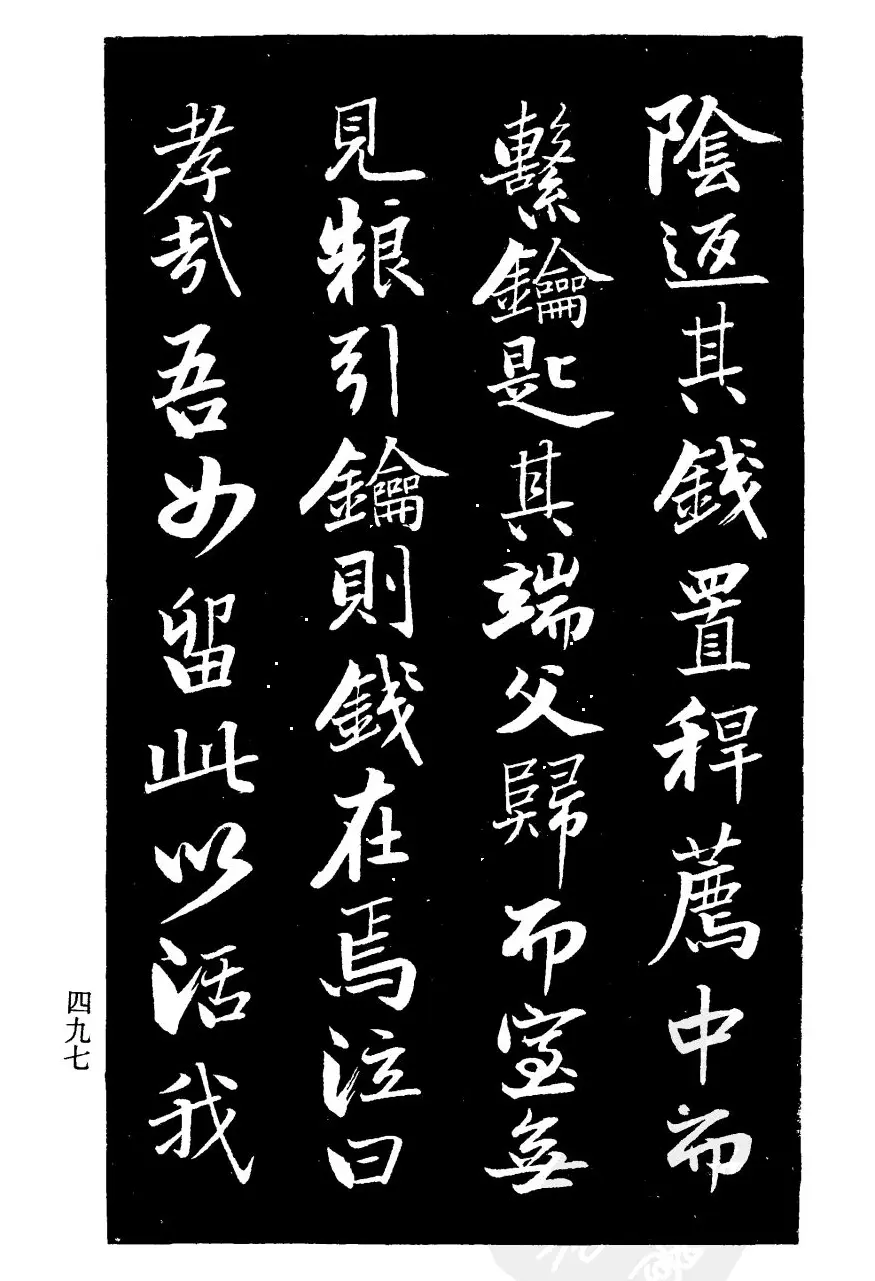 陰返其錢置稈薦中而
繫鑰匙其端父歸而室無
見粮引鑰則錢在焉泣曰
孝哉吾女留此以活我
四九七